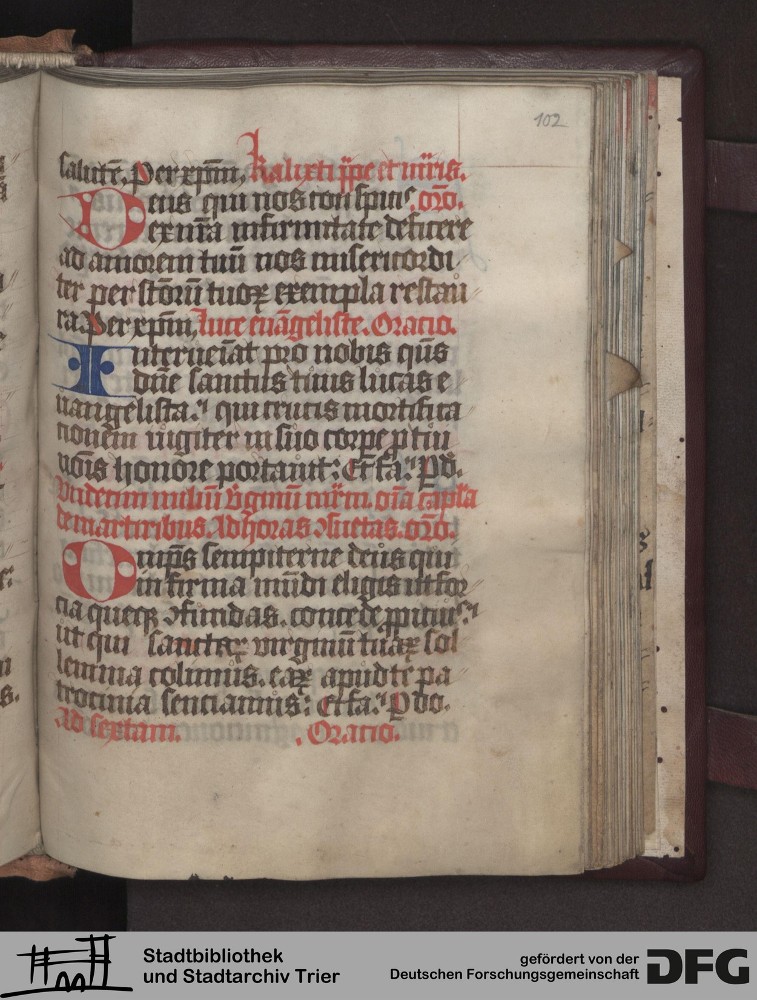 102
salutē. Per xp̄m, Kalixti pp̄e et mr̄is.
Deus qui nos conspicis orō.
ex nr̄a infirmitate deficere
ad amorem tuū nos misericordi
ter per sc̄torū tuoꝝ exempla restau
ra Per xp̄m, Luce euāgeliste. Oracio.
Interueīat pro nobis qūs
dn̄e sanctus tuus lucas e
uangelista. qui crucis mortifica
tionem iugiter in suo corpe p tui
nōis honore portauit: Et fa. P d.
Vndecim miliū v̓ginū ōīa cap̄la
de martiribus. Ad horas ɔsuetas. orō.
Omp̄s sempiterne deus qui
infirma mūdi eligis ut for
cia queqꝫ ɔfundas. concede ppiciꝰ
ut qui sanctaꝝ virginū tuaꝝ sol
lemnia colimus. eaꝝ apud te pa
trocinia senciamus: Et fa. P do.
Ad sextam. Oratio.
Stadtbibliothek
und Stadtarchiv Trier
gefördert von der
Deutschen Forschungsgemeinschaft
DFG